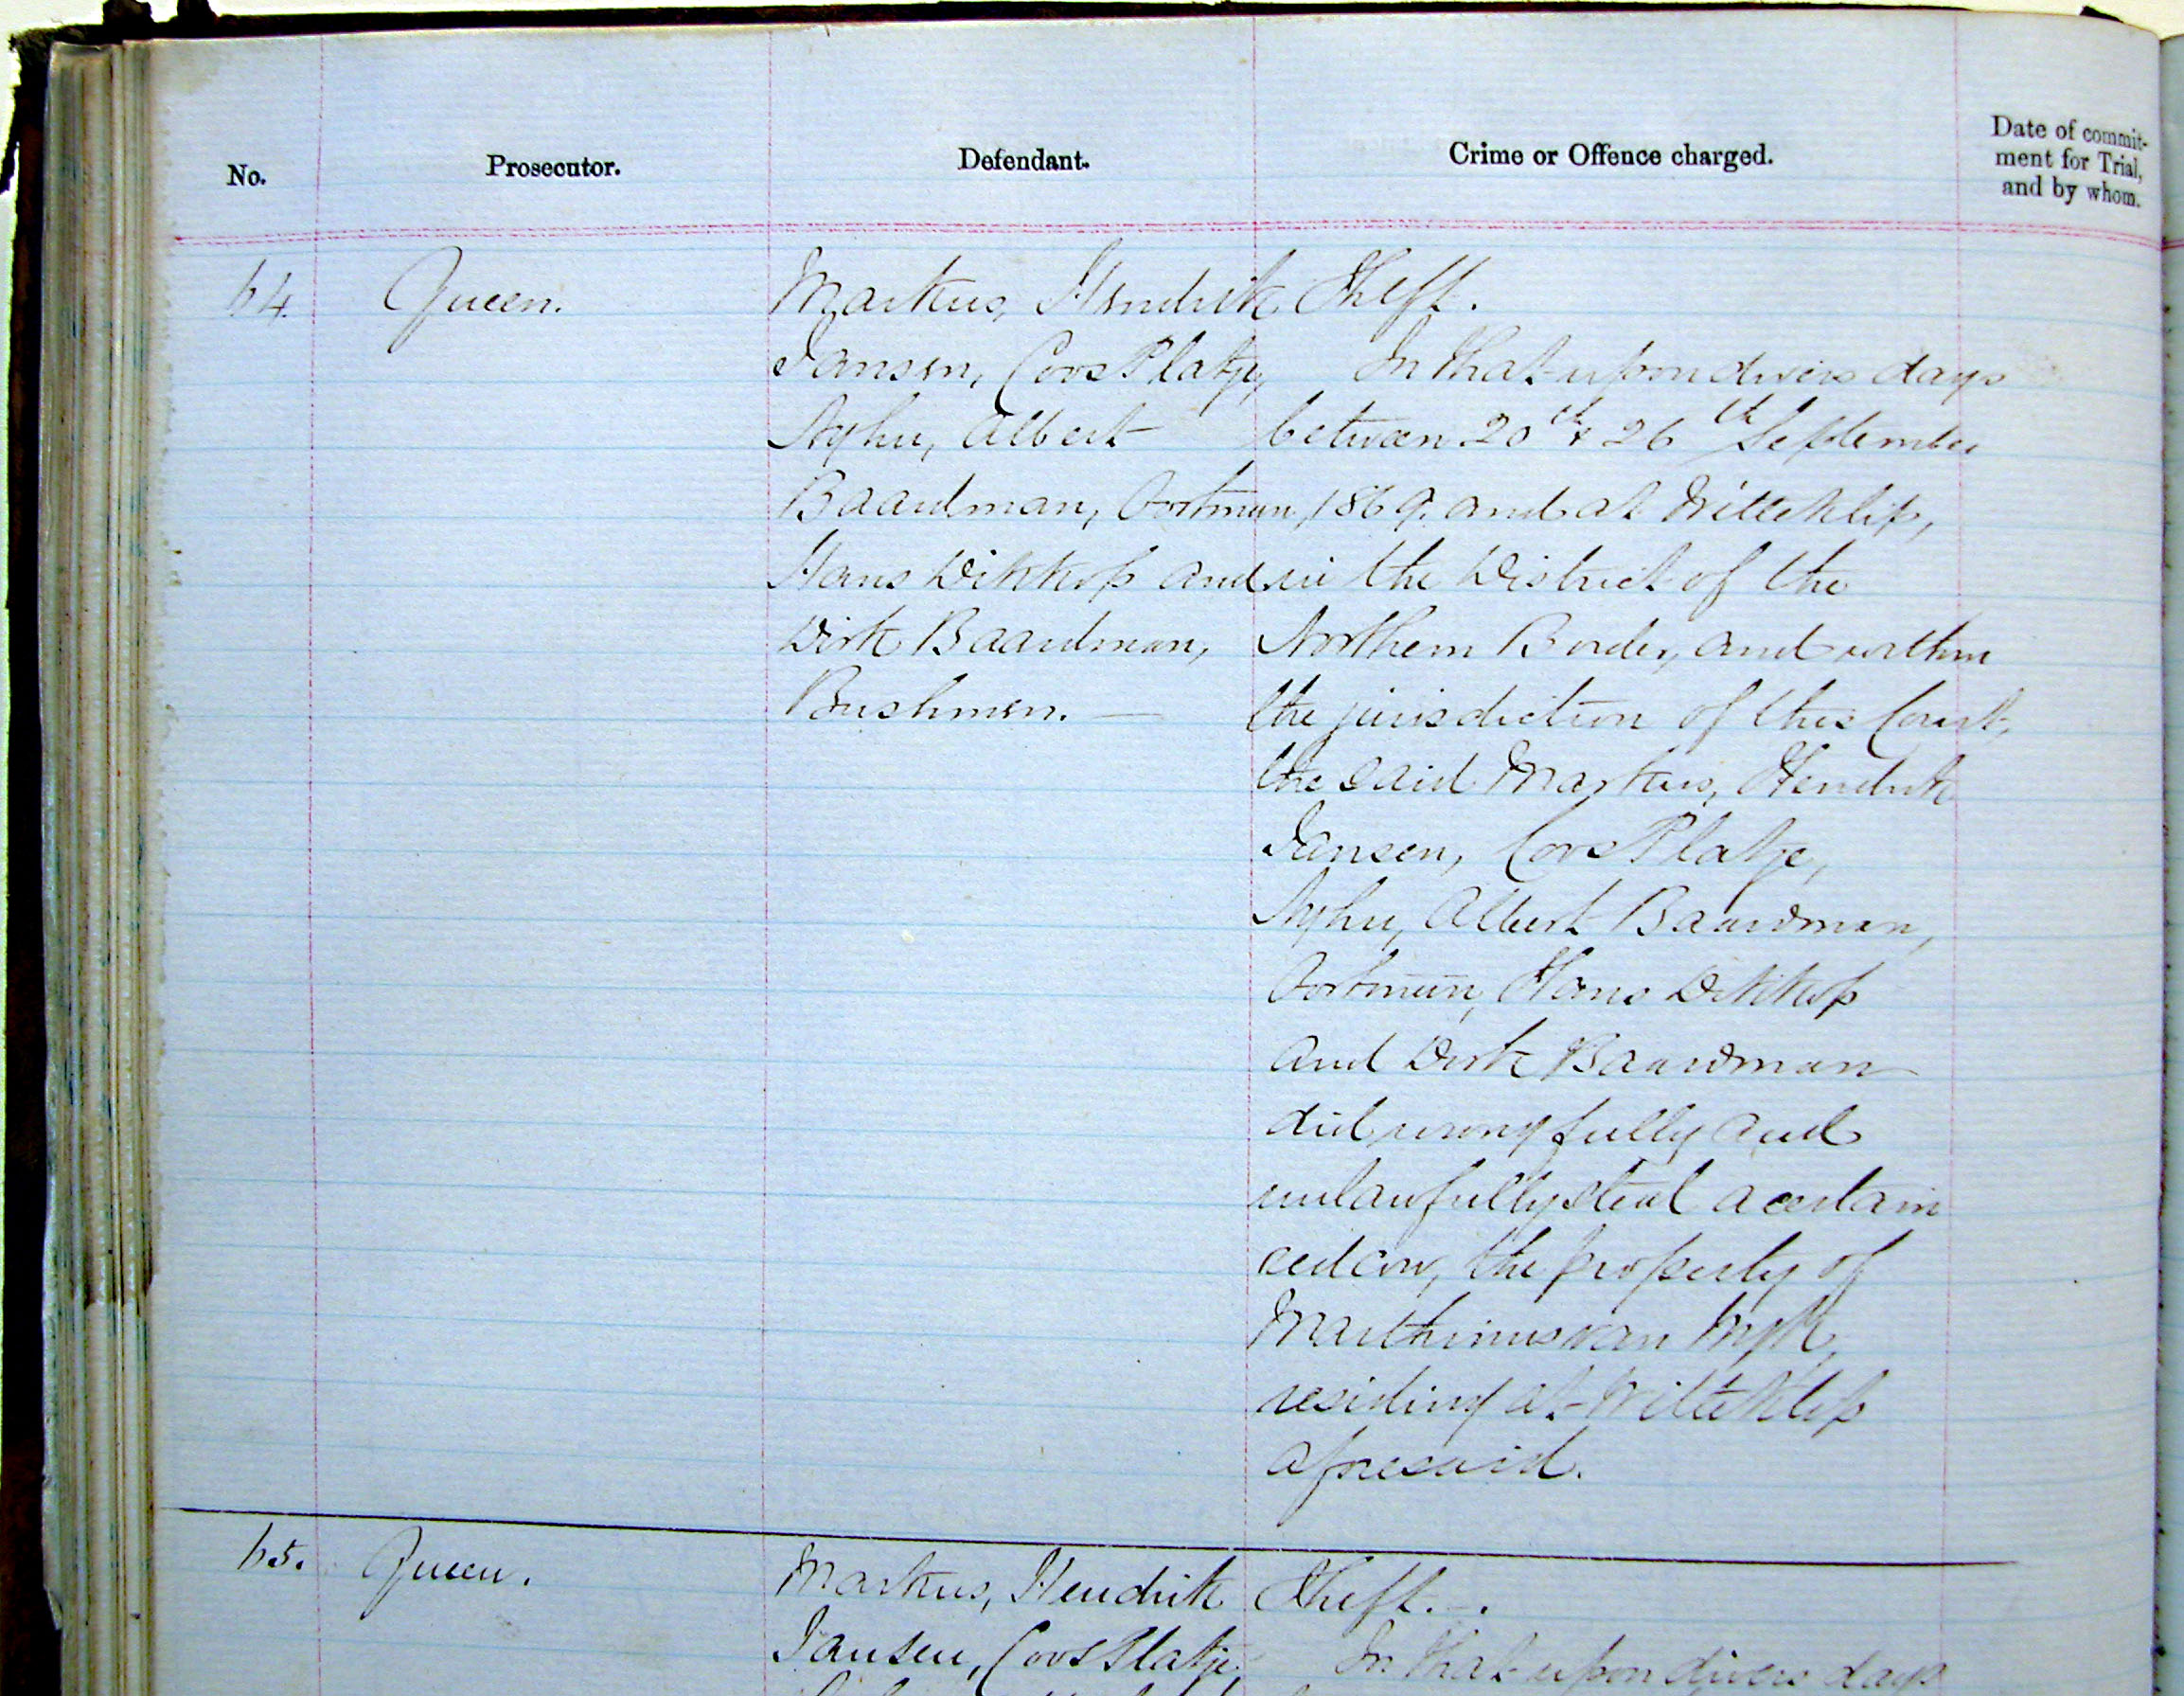 No.
Prosecutor.
Defendant.
Crime or Offence charged.
Date of commit-
ment for Trial,
and by whom.
64.
Queen.
Markus, Hendrik
Jansen, Coos Platje,
Albert
Baardman, Oortman,
Hans Dikkop and
Dirk Baardman,
Bushmen. —
Theft.
In that upon divers days
between 20th & 26th September
1869. and at Witteklip,
in the District of the
Northern Border, and within
the jurisdiction of this Court,
the said Markus, Hendrik
Jansen, Coos Platje,
Albert Baardman,
Oortman, Hans Dikkop
and Dirk Baardman
did wrongfully and
unlawfully steal a certain
red cow, the property of
Marthinus van Wyk,
residing at Witteklip
aforesaid.
65.
Queen.
Markus, Hendrik
Jansen, Coos Platje,
Theft. -.
In that upon divers days